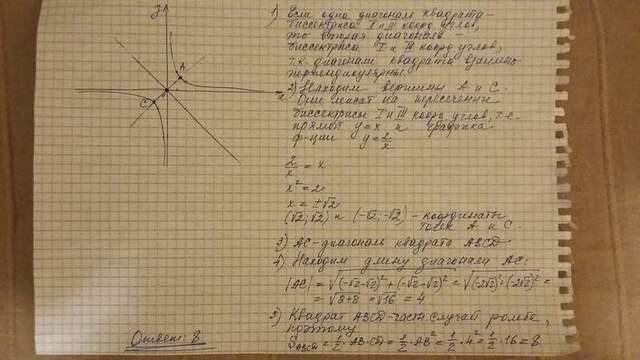 y
A
C
x
1) Если одна диагональ квадрата -
биссектриса II и IV коорд. углов,
то вторая диагональ -
биссектриса I и III коорд. углов,
т.к. диагонали квадрата взаимно
перпендикулярны.
2) Находим вершины A и C.
Они лежат на пересечении
биссектрисы I и III коорд. углов, т.е.
прямой y=x и графика
ф-ции y=2/x
2/x = x
x²=2
x = ±√2
(√2; √2) и (-√2; -√2) - координаты
точек A и C.
3) AC - диагональ квадрата ABCD
4) Находим длину диагонали AC:
|AC| = √((-√2-√2)² + (-√2-√2)²) = √((-2√2)² + (-2√2)²) =
= √(8+8) = √16 = 4
5) Квадрат ABCD - частн. случай ромба,
поэтому
S ABCD = 1/2 · AB · CD = 1/2 · AB² = 1/2 · 4 = 1/2 · 16 = 8
Ответ: 8